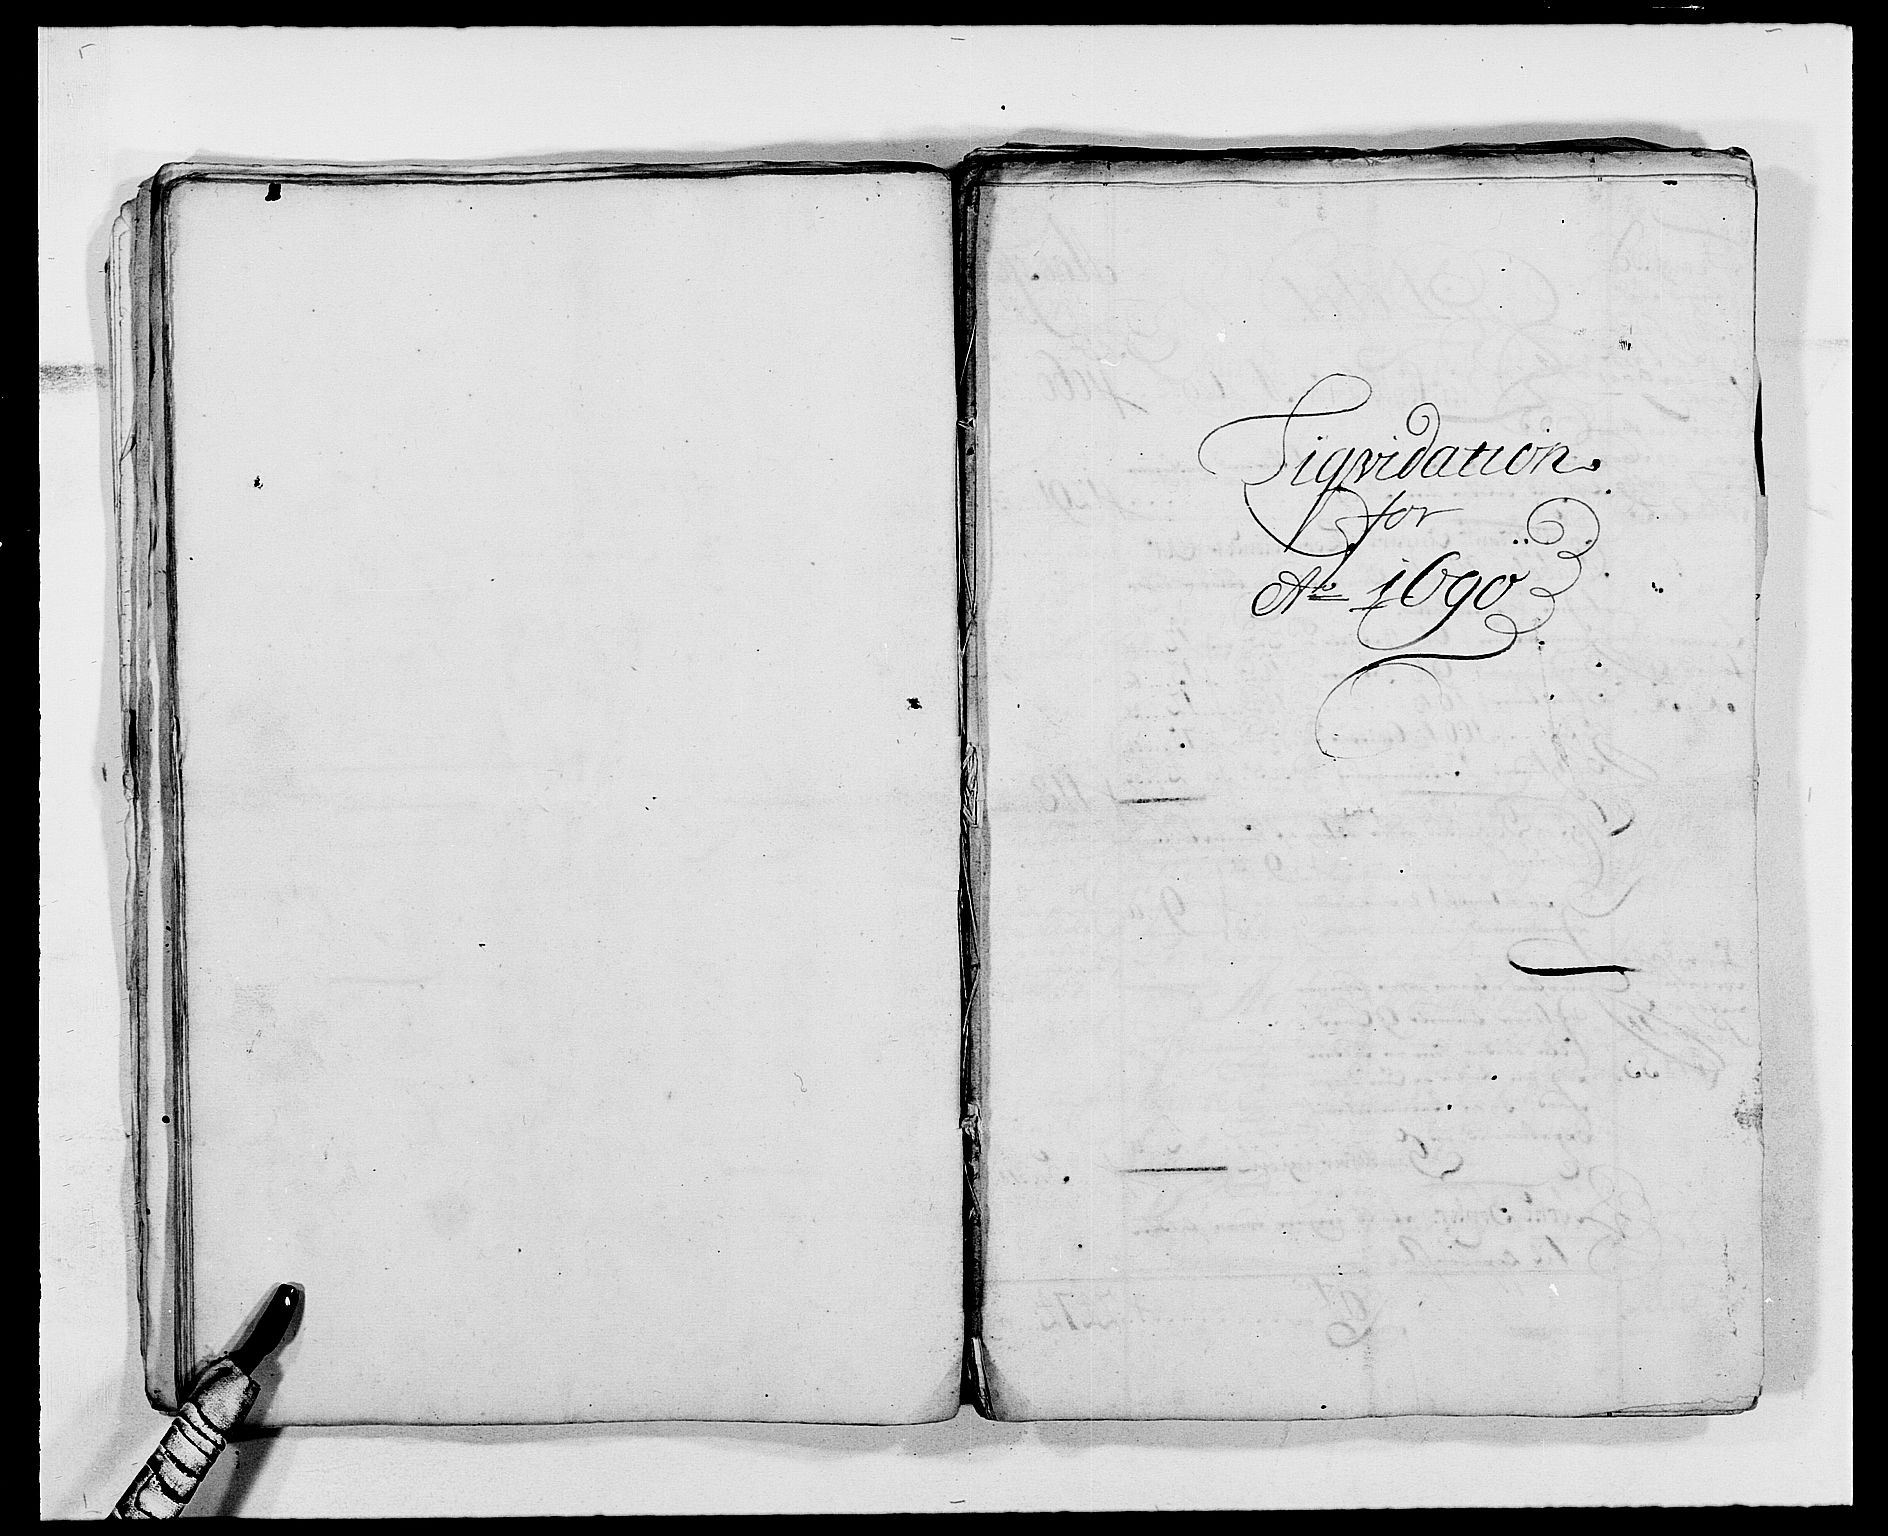 Liqvidation
for
Ao 1690